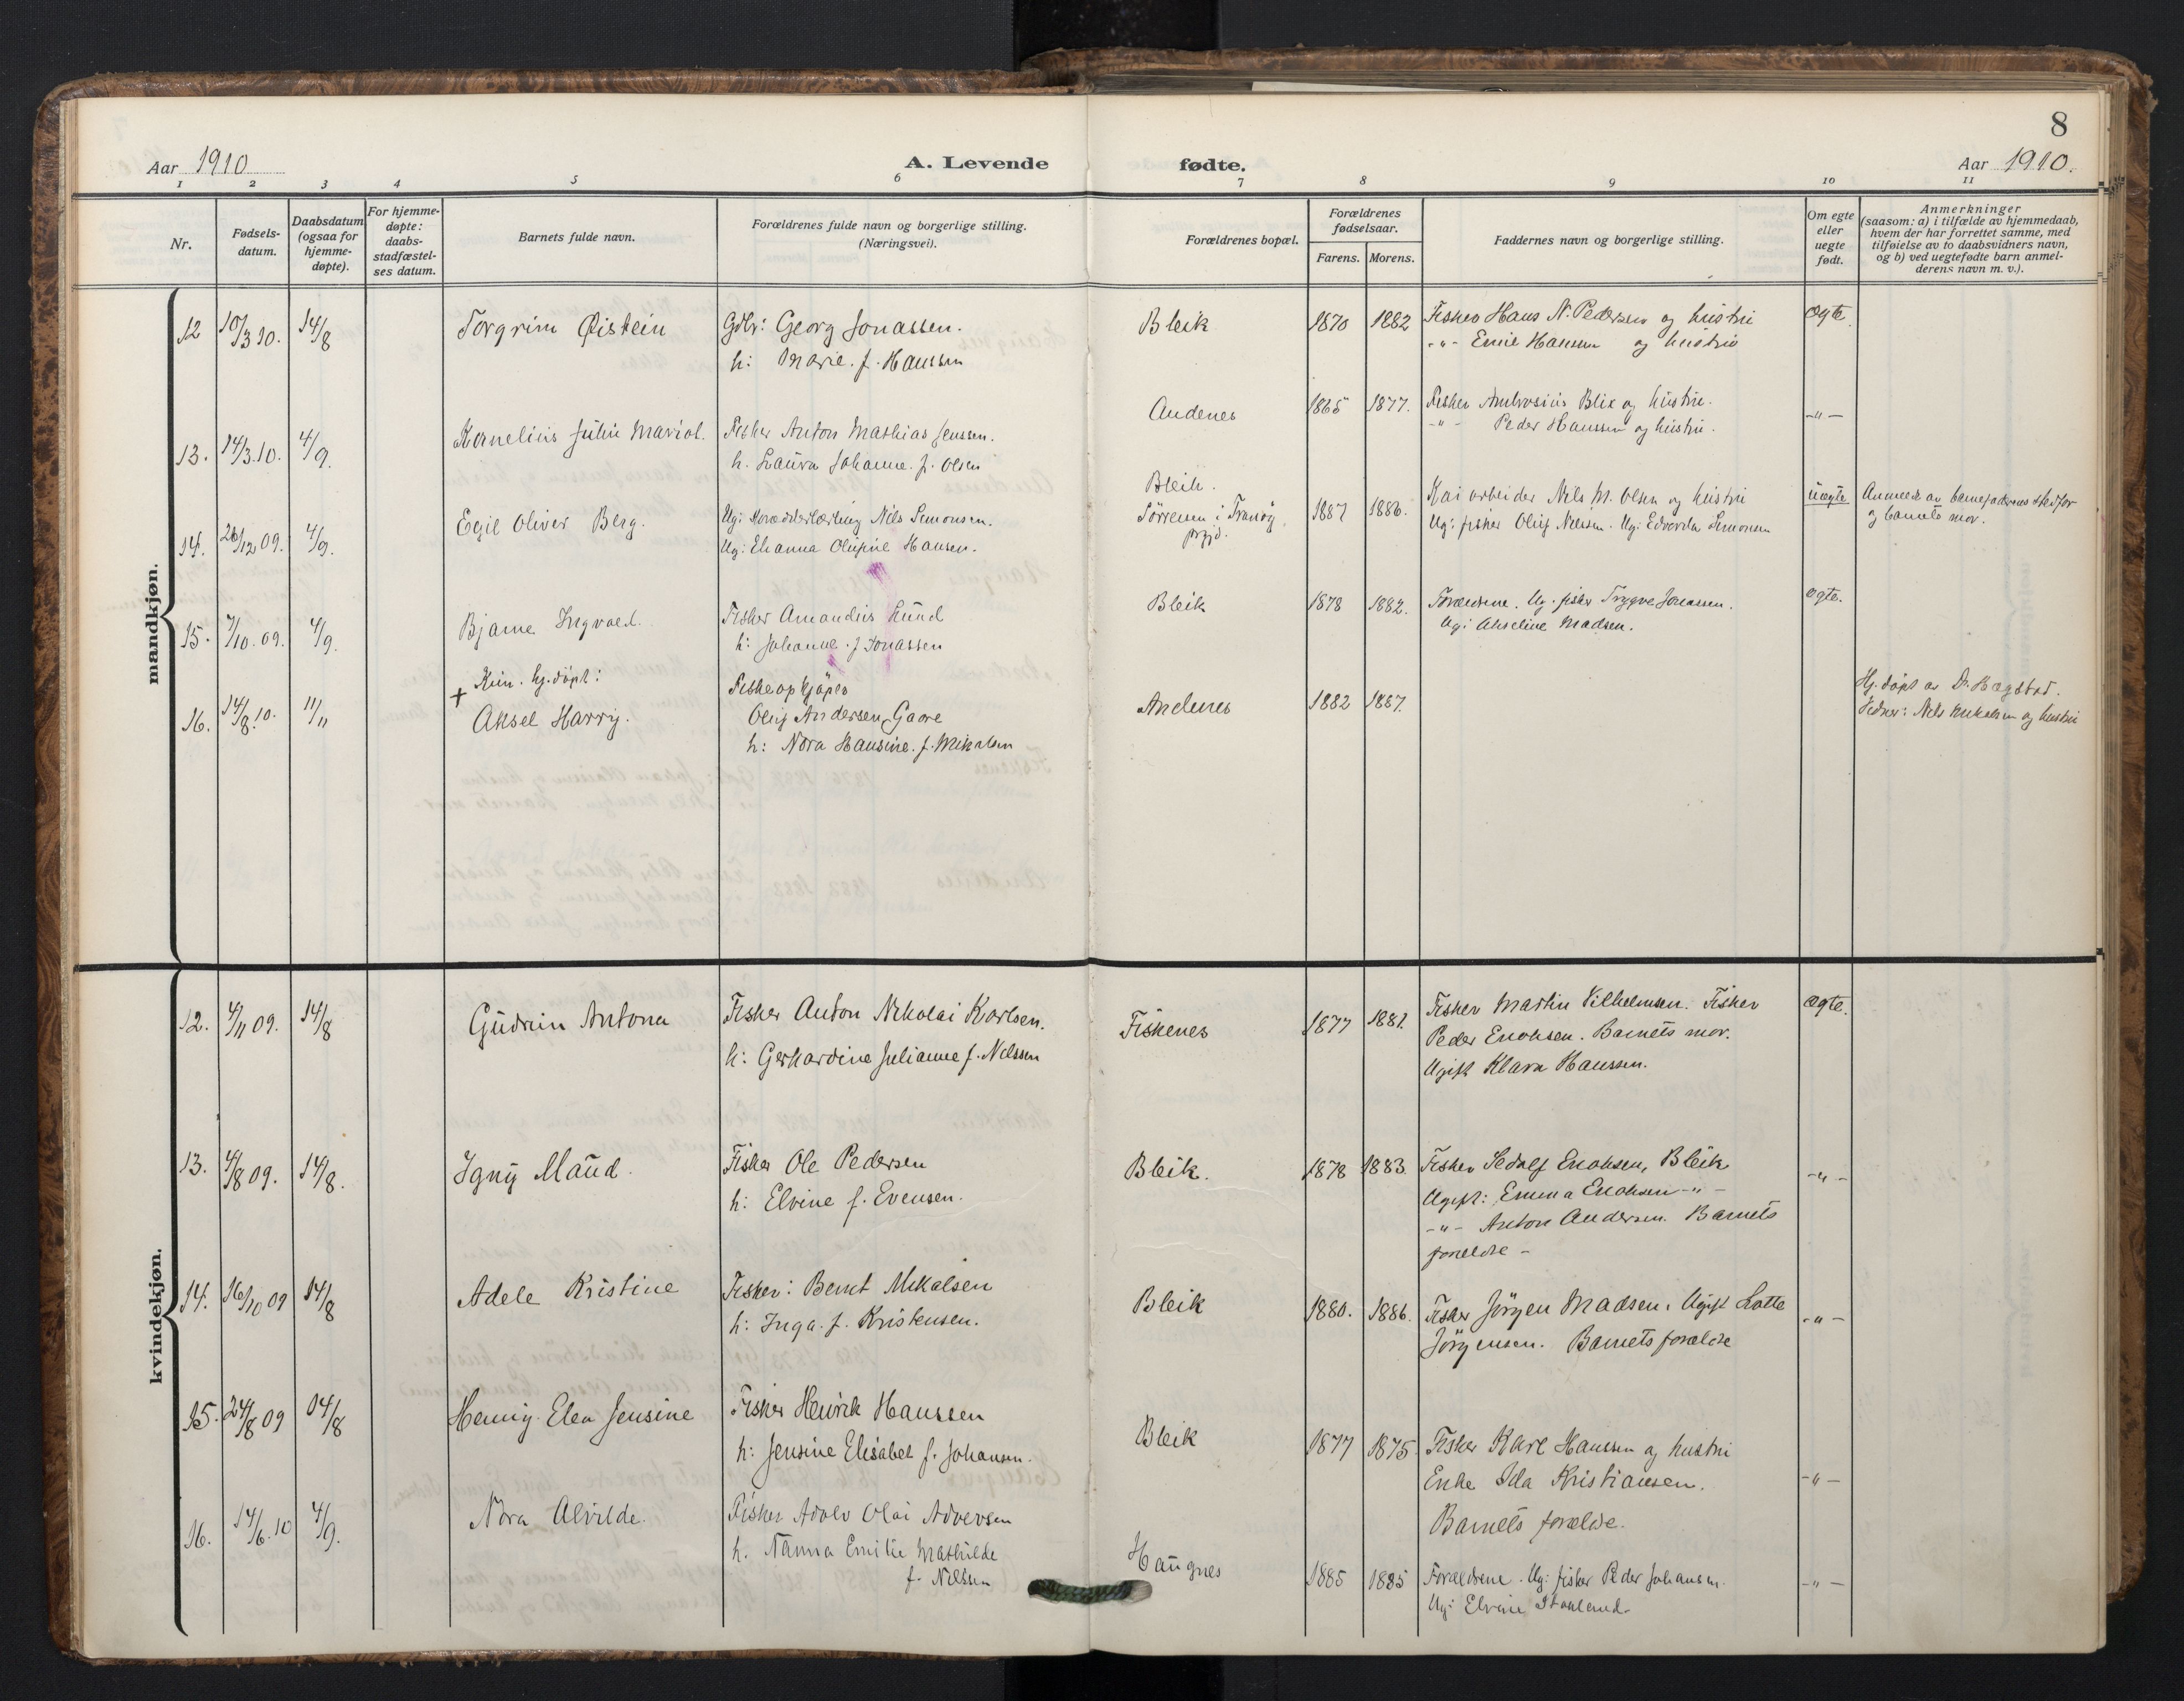 8
Aar 1910
A. Levende fødte.
Aar 1910.
1 2 3 4 5 6 7 8 9 10 11
Nr.
Fødsels-
datum.
Daabsdatum
(ogsaa for
hjemme-
døpte).
For hjemme-
døpte:
daabs-
stadfæstel-
ses datum.
Barnets fulde navn.
Forældrenes fulde navn og borgerlige stilling.
(Næringsvei).
Forældrenes bopæl.
Forældrenes
fødselsaar.
Farens. Morens.
Faddernes navn og borgerlige stilling.
Om egte
eller
uegte
født.
Anmerkninger
(saasom: a) i tilfælde av hjemmedaab,
hvem der har forrettet samme, med
tilføielse av to daabsvidners navn,
og b) ved uegtefødte barn anmel-
derens navn m. v.).
mandkjøn.
12 10/3 10. 14/8 Torgrim Øistein Gdbr: Georg Jonassen. Bleik 1870 1882 Fisker Hans N. Pedersen og hustru ægte.
h: Marie. f. Hanssen -"- Emil Hansen og hustru
13. 14/3.10. 4/9. Kornelius Julin Mariot. Fisker Anton Mathias Jenssen. Andenes 1865 1877. Fisker Ambrosius Blix og hustru. -"-
h. Laura Johanne. f. Olsen -"- Peder Hanssen og hustru.
14. 26/12 09. 4/9. Egil Oliver Berg. Ug: Nils Simonsen. Bleik. 1887 1886. Kaiarbeider Nils M. Olsen og hustru uægte
Ug: Ehanna Olufine Hansen. i Tranöy prgjd. Ug: fisker Oluf Nilssen. Ug: Edvarda Simonsen
Anmeldt av barnefaderens stedfar
og barnets mor.
15. 7/10.09. 4/9. Bjarne Ingvald. Fisker Amandus Lund Bleik 1878 1882. Forældrene. Ug. fisker Trygve Jonassen. ægte.
h: Johanne. f Jonassen Ug: Akseline Madsen.
+ Kun. hj.døpt:
16. 14/8.10. 11/11 Aksel Harry. Fiskeopkjøper Andenes 1882 1887.
Oluf Andersen Gaare
h: Nora Hansine. f. Mikalsen
Hj.døpt av Dr. Hagstad.
Vidner: Nils Mikalsen og hustru
kvindekjøn.
12. 4/11 09. 14/8 Gudrun Antona Fisker Anton Nikolai Karlsen. Fiskenes 1877 1881. Fisker Martin Vilhelmsen. Fisker ægte.
h: Gerhardine Julianne f. Nilssen Peder Enoksen. Barnets mor.
Ugift Klara Hanssen.
13. 4/8 09. 14/8. Ignÿ Maud. Fisker Ole Pedersen Bleik. 1878 1883. Fisker Sedolf Enoksen, Bleik -"-
h: Elvine f. Evensen. Ugift: Emma Enoksen -"-
-"- Anton Andersen. Barnets
forældre -
14. 16/10 09 14/8 Adele Kristine Fisker: Bernt Mikalsen Bleik 1880. 1886. Fisker Jörgen Madsen. Ugift Lotte -"-
h: Inga. f. Kristensen. Jörgensen. Barnets forældre
15. 24/8 09 14/8 Henny Elen Jensine Fisker Henrik Hanssen Bleik 1877 1875. Fisker Karl Hanssen og hustru
h: Jensine Elisabet f. Johansen. Enke Ida Kristiansen. -"-
Barnets forældre.
16. 14/6.10 4/9. Nora Alvilde. Fisker Adolv Olai Adversen Haugnes 1885 1885 Forældrene. Ug: fisker Peder Johansen. -"-
h. Nanna Emilie Mathilde Ug: Elvine
f. Nilssen